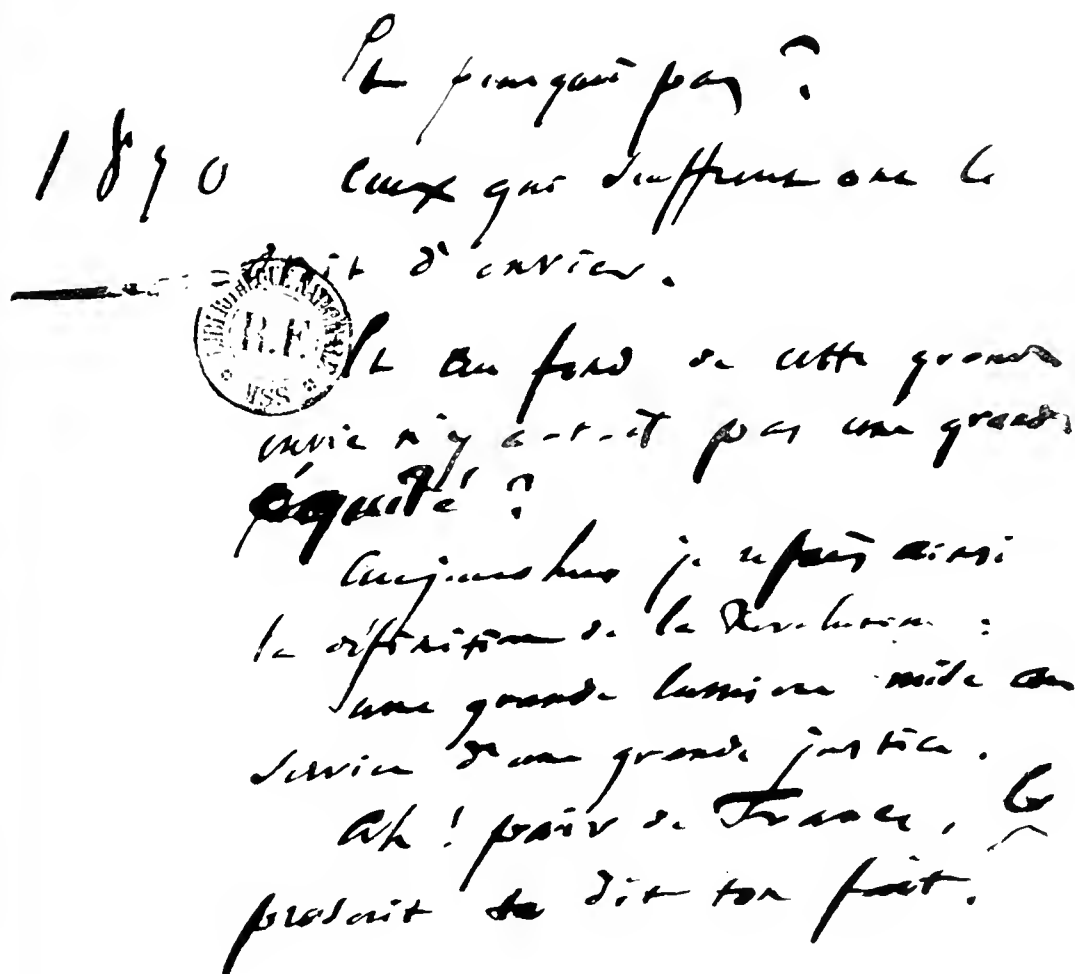 Et pourquoi pas ?
1870 Ceux qui souffrent ont le
droit d'envier.
BIBLIOTHÈQUE NATIONALE R.F. MSS
Et au fond de cette grande
envie n'y a-t-il pas une grande
équité ?
Aujourd'hui je refais ainsi
la définition de la Révolution :
une grande lumière mise au
service d'une grande justice.
Ah ! pair de France, le
proscrit te dit ton fait.